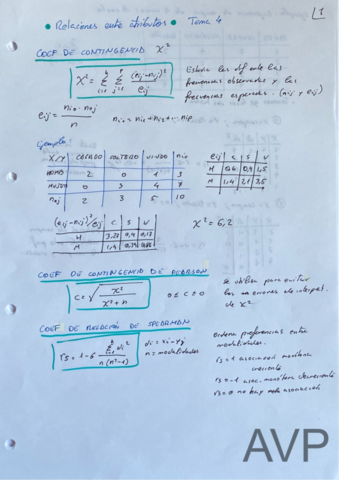 1
• Relaciones entre atributos • Tema 4
COEF DE CONTINGENCIA X²
X² = Σ Σ (nij - nij)² / eij
Estudia las dif entre las
frecuencias observadas y las
frecuencias esperadas. (nij y eij)
eij = ni. · n.j / n
Ejemplo:
X/Y CASADO SOLTERO VIUDO ni.
HOMB 2 0 1 3
MUJER 0 3 4 7
n.j 2 3 5 10
eij C S V
H 0,6 0,9 1,5
M 1,4 2,1 3,5
(eij-nij)²/eij C S V
H 3,27 0,9 0,17
M 1,4
X² = 6,2
COEF DE CONTINGENCIA DE PEARSON
C = √ X² / X² + n
Se utiliza para evitar
los errores de interpret.
de X².
COEF DE RELACIÓN DE SPEARMAN
rs = 1 - 6 Σ di² / n(n²-1)
di = xi - yj
n = modalidades
Ordena preferencias entre
modalidades.
rs = 1 asociación monótona
creciente
rs = -1 asoc. monótona decreciente
rs = 0 no hay asociación
AVP